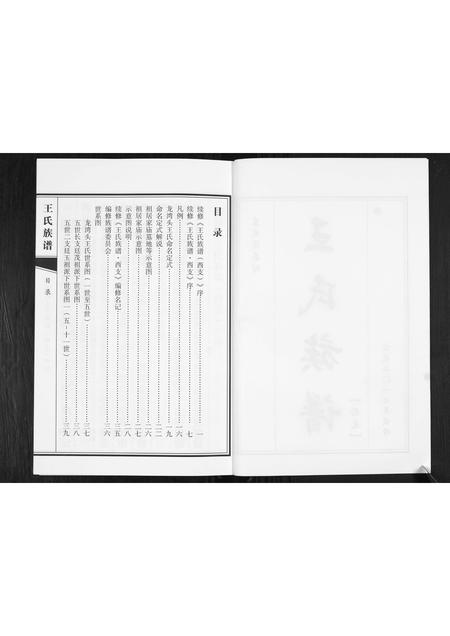 目录
续修《王氏族谱（西支）》序……一
续修《王氏族谱·西支》序……七
凡例……一六
龙湾头王氏命名定式……一九
命名定式解说……二二
祖居家庙墓地等示意图……二六
祖居家庙示意图……二七
示意图说明……二八
续修《王氏族谱·西支》编修名记……三五
编修族谱委员会……三六
世系图
龙湾头王氏世系图（一世至五世）……三七
五世长支廷茂祖派下世系图……三八
五世二支廷玉祖派下世系图一（五－十一世）……三九
王氏族谱
目录
氏族谱